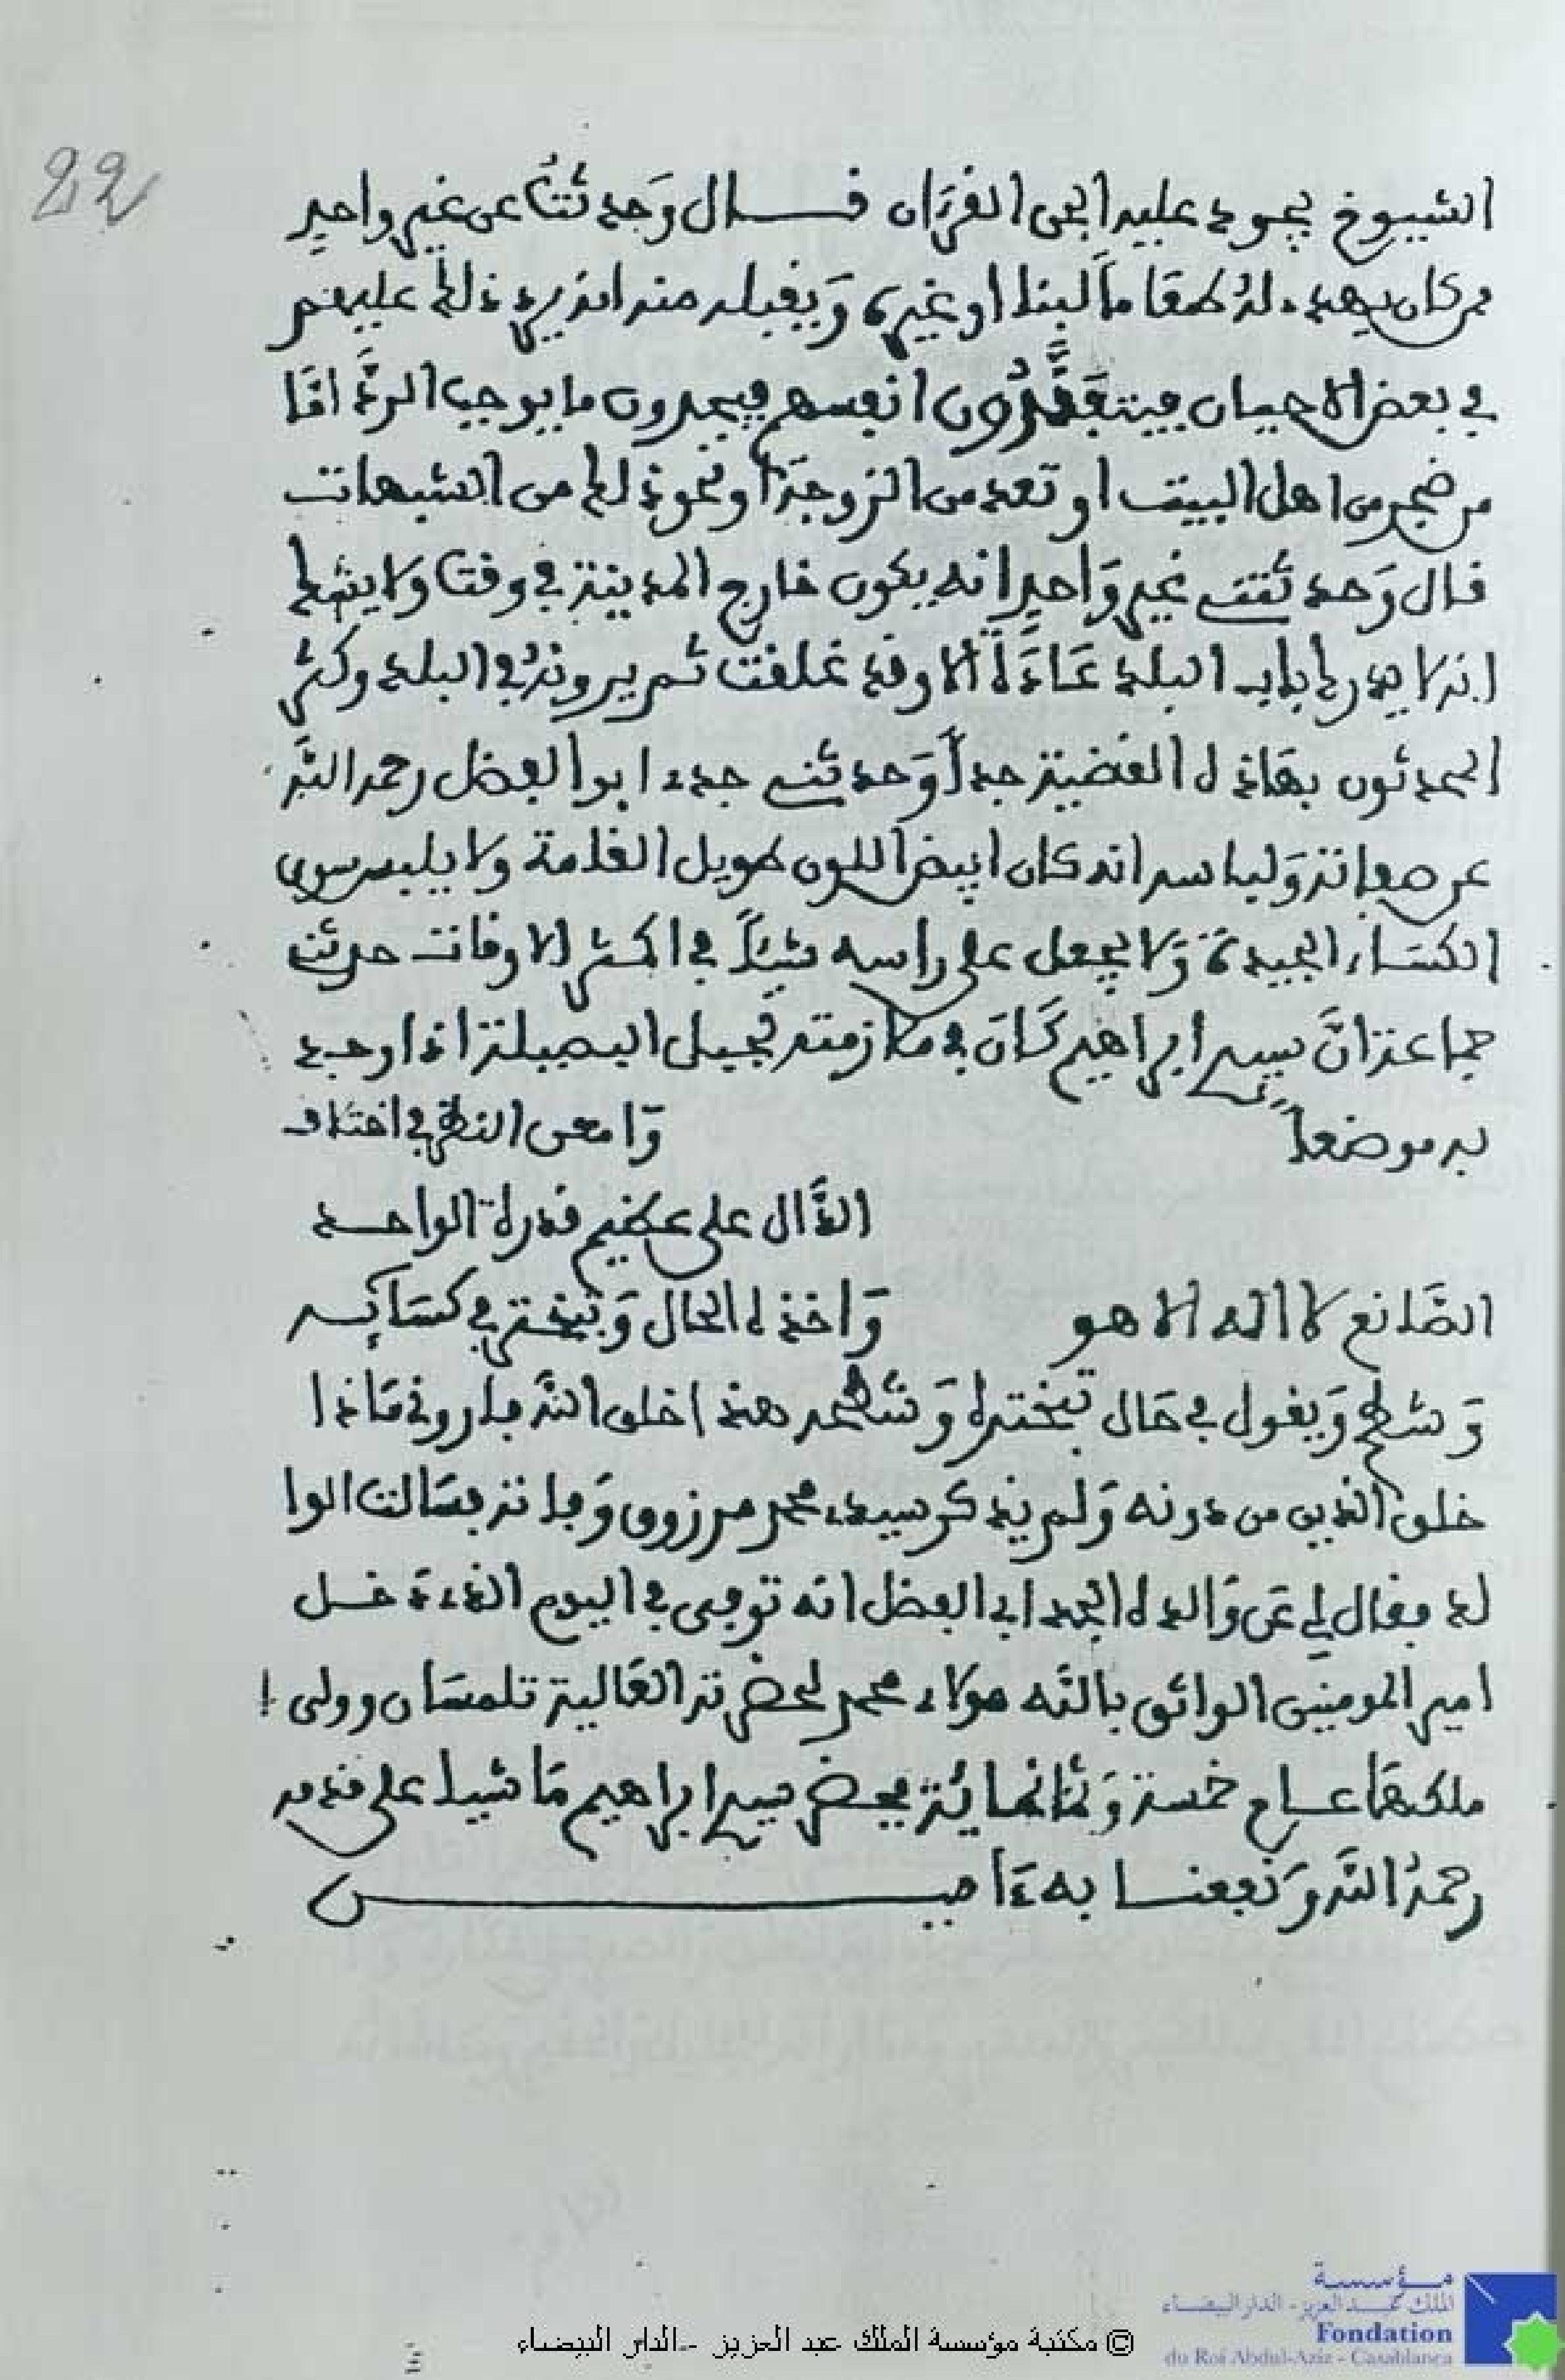 22
الشيوخ يجود عليه الجن القرءان قـــال وَحدثتُ عن غير واحدٍ
من كان يهدى له طعاما لبنا او غيره وَيقبله منه انه يرد ذلك عليهم
في بعض الاحيان فيتفقَّدُون انفسهم فيجدون ما يوجب الردَّ امَّا
من ضجر من اهل البيت او تعد من الزوجة او نحو ذلك من الشبهات
قال وَحدثنے غير وَاحدٍ انه يكون خارج المدينة في وقت ولا يشك
انه لا يدرك باب البلد عَادَة الا وقد غلقت ثم يرونهُ في البلد وكثر
المحدثون بهاذه القضية جداً وَحدثنے جدي ابو الفضل رحمه الله
عن صفاته وَلباسه انه كان ابيض اللون طويل القامة ولا يلبس سوى
الكسَاء الجيدة وَلا يجعل على راسه شيئاً في اكثر الاوقات حدثنے
جماعة انَّ سيدي ابراهيم كَان في ملازمته لجبل البصيلة اذا اوجد
به موضعاً وَامعن النظر في اختلاف
الدَّال على عظيم قدرة الواحـد
الصَّانع لا اله الا هو وَاخذه الحال وَتبختر في كسَائه
وَشطح وَيقول في حَال تبختره وَشطحه هذا خلق الله فاروني مَاذا
خلق الذين من دونه وَلم يذكر سيدي محمد مرزوق وَفاته فسَالت الوا
لد فقال لي عَن وَالده الجد ابي الفضل انه توفى في اليوم الذي دخــل
امير المومنين الواثق بالله مولاي محمد لحضرته العَالية تلمسَان وولى
ملكهَا عــام خمسة وَثمانمائة يحضر سيدي ابراهيم مَاشيا على قدمه
رحمهُ الله وَنفعنــا به ءامیــــــن
© مكتبة مؤسسة الملك عبد العزيز - الدار البيضاء
مؤسسة
الملك عبد العزيز - الدار البيضاء
Fondation
du Roi Abdul-Aziz - Casablanca